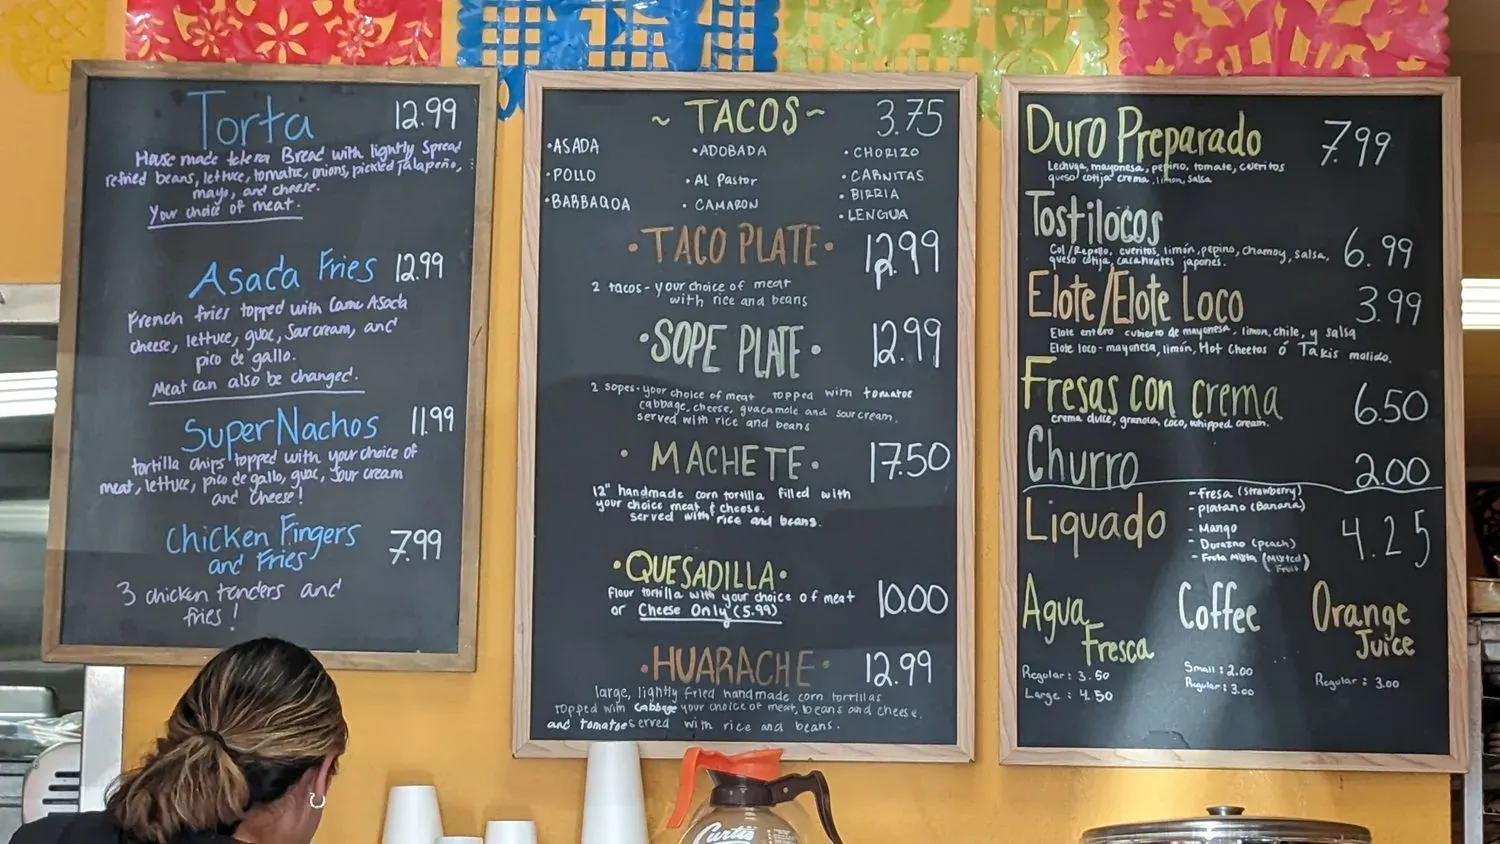 Torta 12.99
House made telera Bread with lightly Spread
refried beans, lettuce, tomatoe, onions, pickled jalapeño,
mayo, and cheese.
Your choice of meat.
Asada Fries 12.99
French fries topped with Carne Asada
cheese, lettuce, guac, Sour cream, and
pico de gallo.
Meat can also be changed.
Super Nachos 11.99
tortilla chips topped with your choice of
meat, lettuce, pico de gallo, guac, Sour cream
and cheese!
Chicken Fingers
and Fries 7.99
3 chicken tenders and
fries!
~ TACOS ~ 3.75
•ASADA •ADOBADA •CHORIZO
•POLLO •AL PASTOR •CARNITAS
•BIRRIA
•BARBAQOA •CAMARON •LENGUA
•TACO PLATE• 12.99
2 tacos - your choice of meat
with rice and beans
•SOPE PLATE• 12.99
2 sopes - your choice of meat topped with tomatoe
cabbage, cheese, guacamole and sour cream.
served with rice and beans
• MACHETE • 17.50
12" handmade corn tortilla filled with
your choice meat & cheese.
served with rice and beans.
•QUESADILLA• 10.00
flour tortilla with your choice of meat
or Cheese Only (5.99)
•HUARACHE• 12.99
large, lightly fried handmade corn tortillas
topped with cabbage your choice of meat, beans and cheese,
and tomatoe served with rice and beans.
Duro Preparado 7.99
Lechuga, mayonesa, pepino, tomate, cueritos
queso cotija crema, limon, salsa
Tostilocos 6.99
Col/Repollo, cueritos, limón, pepino, chamoy, salsa,
queso cotija, cacahuates japones.
Elote/Elote Loco 3.99
Elote entero cubierto de mayonesa, limon, chile, y salsa
Elote loco - mayonesa, limón, Hot Cheetos ó Takis molido.
Fresas con crema 6.50
crema dulce, granola, coco, whipped cream.
Churro 2.00
Liquado 4.25
- Fresa (strawberry)
- Platano (Banana)
- Mango
- Durazno (peach)
- Fruta Mixta (Mixted
Fruit)
Agua
Fresca
Regular : 3.50
Large : 4.50
Coffee
Small : 2.00
Regular : 3.00
Orange
Juice
Regular : 3.00
Curtis